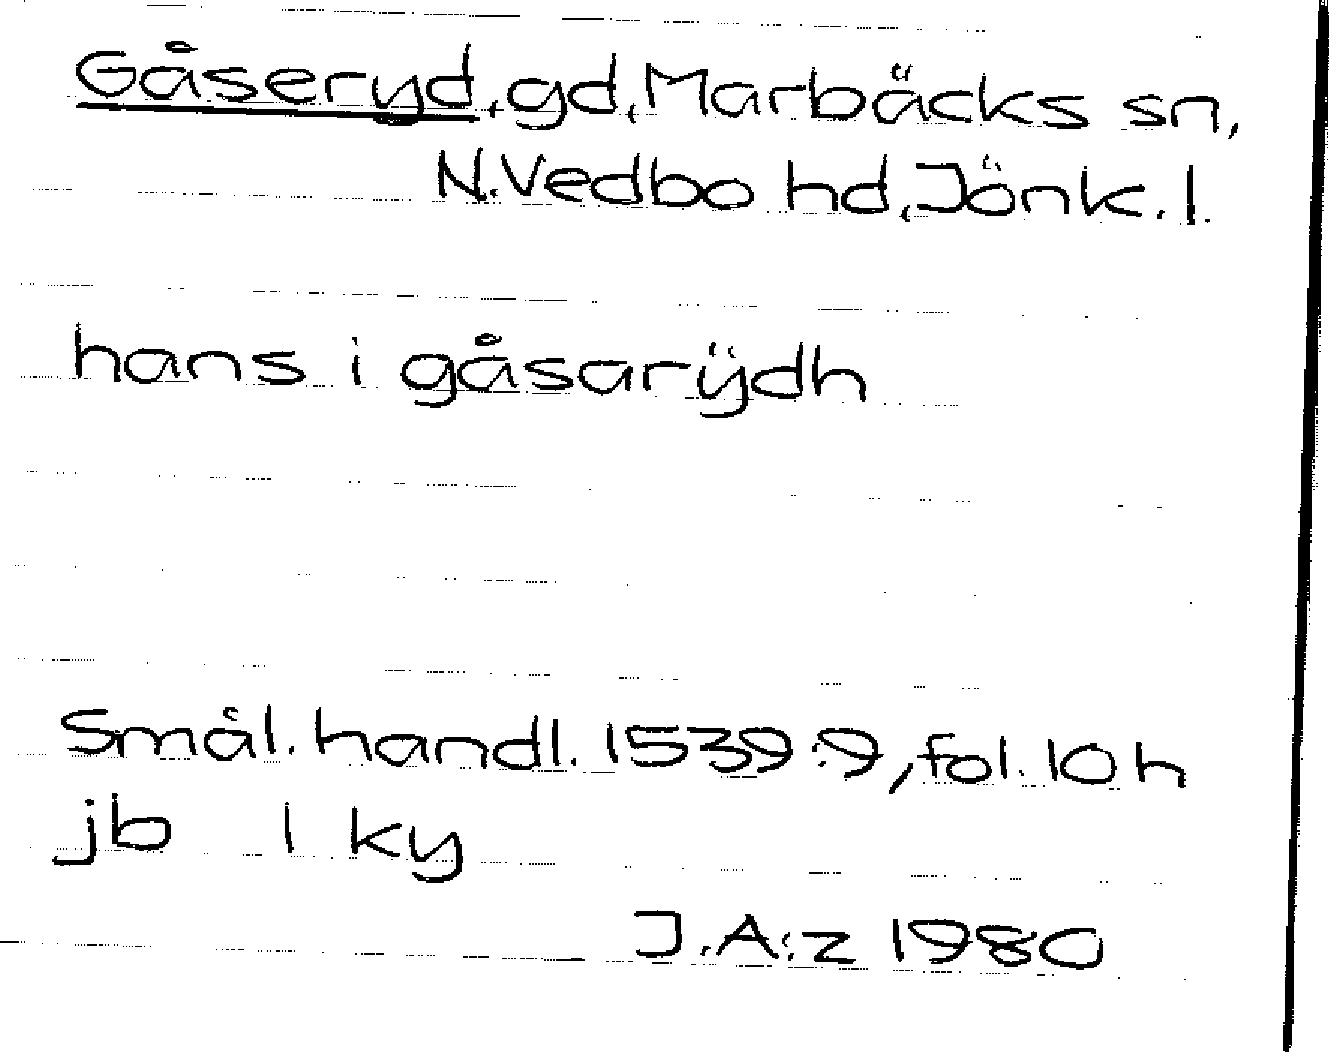 Gåseryd, gd, Marbäcks sn,
N. Vedbo hd, Jönk. l.
hans i gåsarÿdh
Smål. handl. 1539:9, fol. 10 h
jb 1 ky
J.A:z 1980